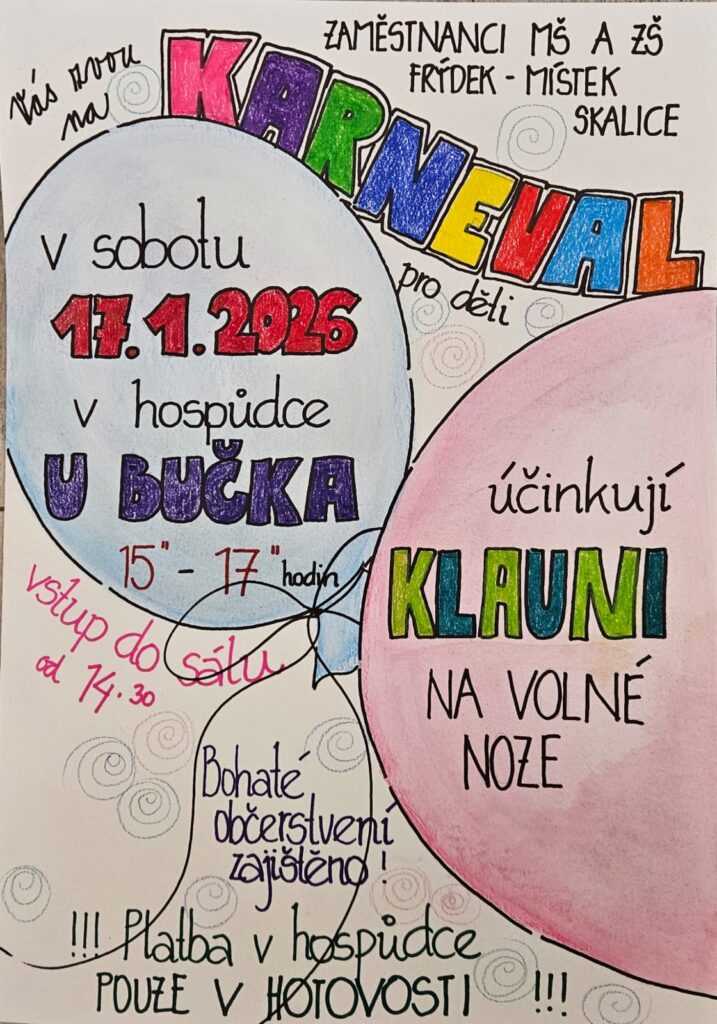 ZAMĚSTNANCI MŠ A ZŠ
FRÝDEK - MÍSTEK
SKALICE
Vás zvou
na
KARNEVAL
pro děti
v sobotu
17.1.2026
v hospůdce
U BUČKA
15" - 17" hodin
vstup do sálu
od 14.30
účinkují
KLAUNI
NA VOLNÉ
NOZE
Bohaté
občerstvení
zajištěno!
!!! Platba v hospůdce
POUZE V HOTOVOSTI !!!